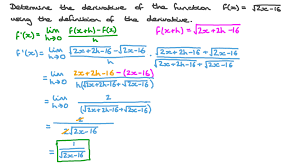 Determine the derivative of the function f(x) = √2x-16
using the definition of the derivative.
f'(x) = lim h→0 f(x+h)-f(x) / h    f(x+h) = √2x+2h-16
f'(x) = lim h→0 √2x+2h-16 - √2x-16 / h · √2x+2h-16 + √2x-16 / √2x+2h-16 + √2x-16
= lim h→0 2x+2h-16 - (2x-16) / h(√2x+2h-16 + √2x-16)
= lim h→0 2 / (√2x+2h-16 + √2x-16)
= 2 / 2√2x-16
= 1 / √2x-16